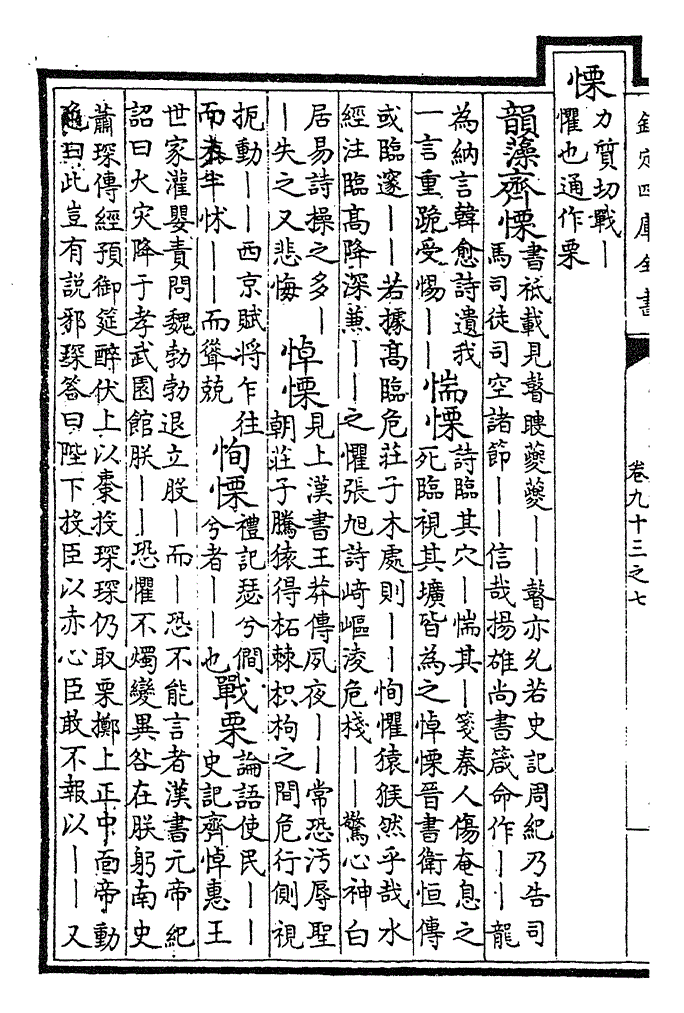 欽定四庫全書 卷九十三之七 一
慄
力質切戰｜
懼也通作栗
韻藻齊慄
書祗載見瞽瞍夔夔｜｜瞽亦允若史記周紀乃告司
馬司徒司空諸節｜｜信哉揚雄尚書箴命作｜｜龍
為納言韓愈詩遺我
一言重跪受惕｜｜
惴慄
詩臨其穴｜惴其｜箋秦人傷奄息之
死臨視其壙皆為之悼慄晉書衛恒傳
或臨邃｜｜若據高臨危莊子木處則｜｜恂懼猿猴然乎哉水
經注臨高降深兼｜｜之懼張旭詩崎嶇淩危棧｜｜驚心神白
居易詩操之多｜
｜失之又悲悔
悼慄
見上漢書王莽傳夙夜｜｜常恐汚辱聖
朝莊子騰猿得柘棘枳拘之間危行側視
扼動｜｜西京賦將乍往
而未半怵｜｜而聳兢
恂慄
禮記瑟兮僩
兮者｜｜也
戰栗
論語使民｜｜
史記齊悼惠王
世家灌嬰責問魏勃勃退立股｜而｜恐不能言者漢書元帝紀
詔曰火灾降于孝武園館朕｜｜恐懼不燭變異咎在朕躬南史
蕭琛傳經預御筵醉伏上以棗投琛琛仍取栗擲上正中面帝動
色曰此豈有說邪琛答曰陛下投臣以赤心臣敢不報以｜｜又